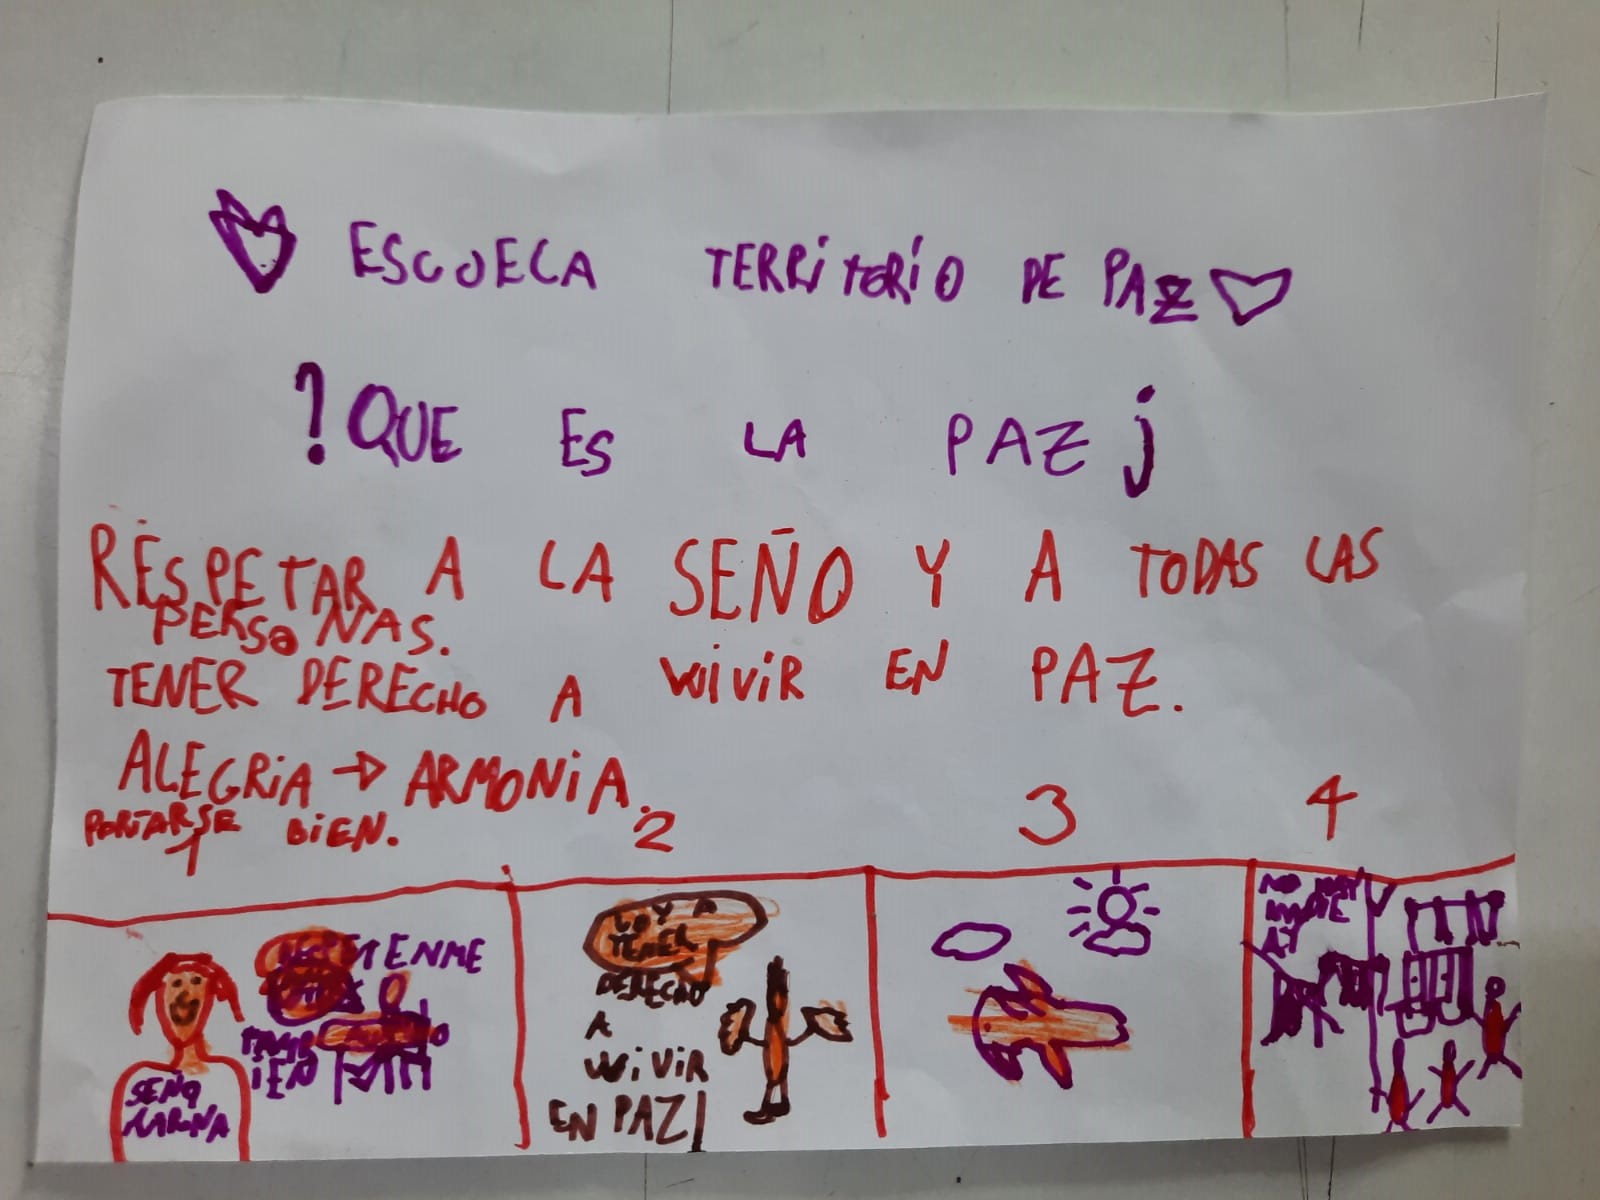 ESCUELA TERRITORIO DE PAZ
? QUE ES LA PAZ ¡
RESPETAR A LA SEÑO Y A TODAS LAS
PERSONAS.
TENER DERECHO A WIVIR EN PAZ.
ALEGRIA → ARMONIA.
PORTARSE BIEN.
1 2 3 4
SEÑO
KARINA
RESPETENME
TAMB
IEN
VOY A
TENER
DERECHO
A
WIVIR
EN PAZ
NO HAY
NADIE